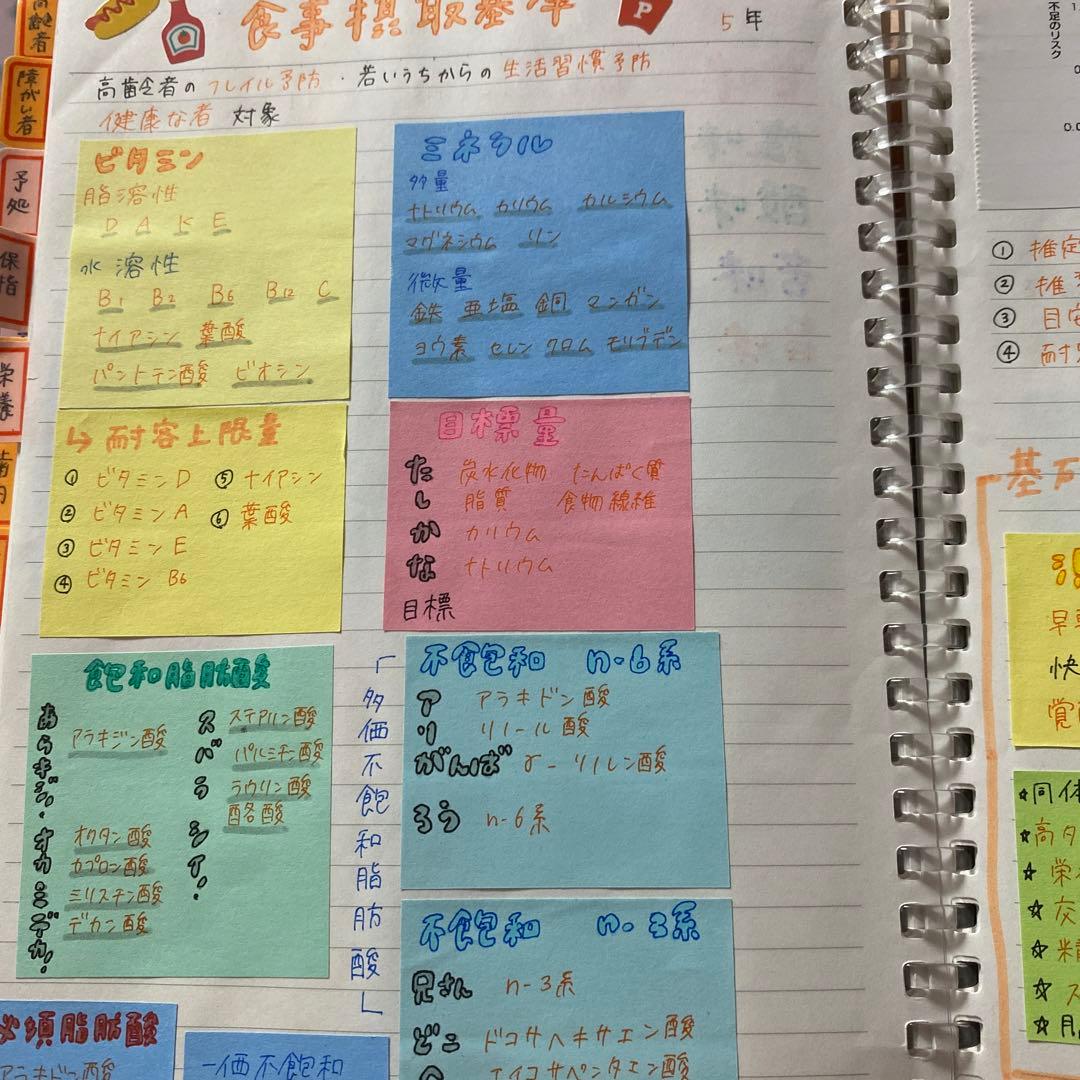 食事摂取基準
P
5年
高齢者のフレイル予防・若いうちからの生活習慣予防
健康な者 対象
高齢者
障がい者
予処
保指
栄養
ビタミン
脂溶性
D A K E
水溶性
B1 B2 B6 B12 C
ナイアシン 葉酸
パントテン酸 ビオシン
ミネラル
多量
ナトリウム カリウム カルシウム
マグネシウム リン
微量
鉄 亜塩 銅 マンガン
ヨウ素 セレン クロム モリブデン
↳耐容上限量
① ビタミンD ⑤ ナイアシン
② ビタミンA ⑥ 葉酸
③ ビタミンE
④ ビタミン B6
目標量
た 炭水化物 たんぱく質
し 脂質 食物線維
か カリウム
な ナトリウム
目標
飽和脂肪酸
あらキジ、 アラキジン酸
オカミデカ!
オクタン酸
カプロン酸
ミリスチン酸
デカン酸
ス ステアルン酸
バ パルミチン酸
ラ ラウリン酸
酪酸
シイ!
「多価不飽和脂肪酸」
不飽和 n-6系
ア アラキドン酸
リ リノール酸
がんば γ-リノレン酸
ろう n-6系
不飽和 n-3系
兄さん n-3系
どこ ドコサヘキサエン酸
へ エイコサペンタエン酸
必須脂肪酸
アラキドン酸
一価不飽和
不足のリスク
0.0
① 推定
② 推
③ 目安
④ 耐
基
早
快
覚
☆同体
☆高タ
☆栄
☆交
☆精
☆ス
☆月